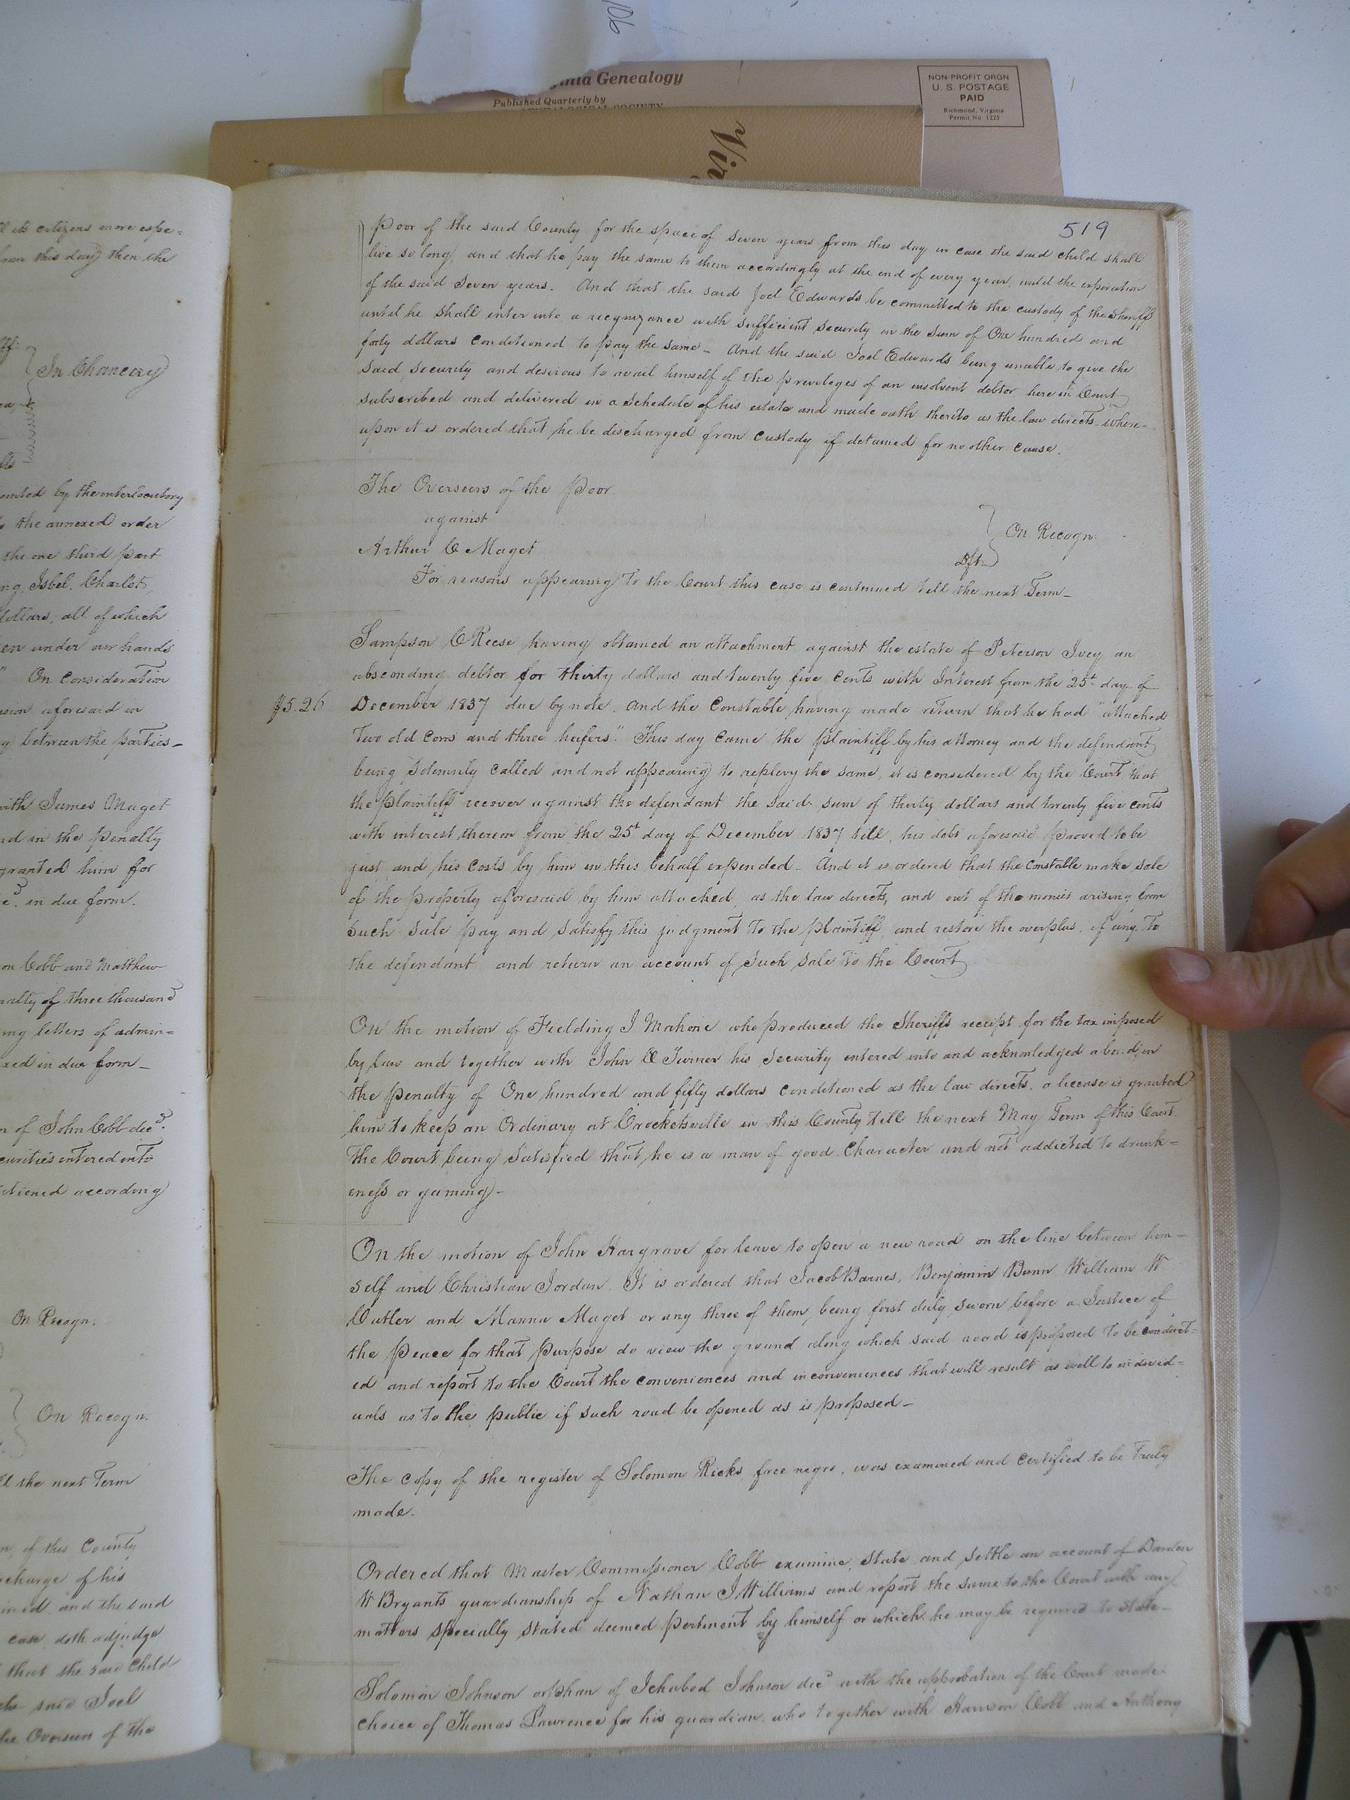 906
nia Genealogy
Published Quarterly by
NON-PROFIT ORGN
U. S. POSTAGE
PAID
Richmond, Virginia
Permit No. 1225
Vir
l its citizens more espe=
from this day) then the
In Chancery
by the interlocutory
the annexed order
the one third part
Isbel, Charlot,
dollars, all of which
under our hands
" On Consideration
aforesaid in
between the parties_
with James Maget
in the penalty
granted him for
in due form.
Cobb and Matthew
of three thousand
letters of admin=
in due form_
of John Cobb decd.
entered into
according
On Recogn.
On Recogn.
the next Term
of this County
of his
and the said
case doth adjudge
that the said Child
the said Joel
the Overseers of the
519
Poor of the said County for the space of seven years from this day in case the said child shall
live so long, and that he pay the same to them accordingly at the end of every year, until the expiration
of the said Seven years. And that the said Joel Edwards be committed to the custody of the sheriff
until he shall enter into a recognizance with sufficient security in the sum of One hundred and
forty dollars conditioned to pay the same_ And the said Joel Edwards being unable to give the
said security and desirous to avail himself of the privileges of an insolvent debtor, here in Court
subscribed and delivered in a schedule of his estate and made oath thereto as the law directs, where=
upon it is ordered that he be discharged from custody if detained for no other cause.
The Overseers of the Poor
against
On Recogn.
Arthur C Maget
Dft
For reasons appearing to the Court this case is continued till the next Term_
Sampson C Reese having obtained an attachment against the estate of Peterson Ivey an
absconding debtor for thirty dollars and twenty five cents with Interest from the 25t day of
$5.26
December 1837 due by note, and the Constable having made return that he had "attached
two old cows and three heifers." This day came the plaintiff by his attorney and the defendant
being solemnly called and not appearing to replevy the same, it is considered by the Court that
the plaintiff recover against the defendant the said sum of thirty dollars and twenty five cents
with interest thereon from the 25t day of December 1837 till, his debt aforesaid proved to be
just and his costs by him in this behalf expended_ And it is ordered that the Constable make sale
of the property aforesaid by him attached, as the law directs, and out of the monies arising from
such sale pay and satisfy this judgment to the plaintiff, and restore the overplus, if any, to
the defendant and return an account of such sale to the Court
On the motion of Fielding J Mahone who produced the Sheriffs receipt for the tax imposed
by law and together with John C Turner his security entered into and acknowledged a bond in
the penalty of One hundred and fifty dollars conditioned as the law directs, a license is granted
him to keep an Ordinary at Crocketsville in this County till the next May Term of this Court
The Court being satisfied that he is a man of good character and not addicted to drunk=
eness or gaming_
On the motion of John Hargrave for leave to open a new road on the line between him=
self and Christian Jordan. It is ordered that Jacob Barnes, Benjamin Bunn, William W
Cutler and Manna Maget or any three of them, being first duly sworn before a Justice of
the Peace for that purpose do view the ground along which said road is proposed to be conduct=
ed and report to the Court the conveniences and inconveniences that will result as well to individ=
uals as to the public if such road be opened as is proposed_
The copy of the register of Solomon Ricks free negro, was examined and certified to be truly
made.
Ordered that Master Commissioner Cobb examine, state and settle an account of Darden
W Bryants guardianship of Nathan J Williams and report the same to the Court with any
matters specially stated deemed pertinent by himself or which he may be required to state_
Solomon Johnson orphan of Ichabod Johnson decd with the approbation of the Court made
choice of Thomas Lawrence for his guardian, who together with Harrison Cobb and Anthony